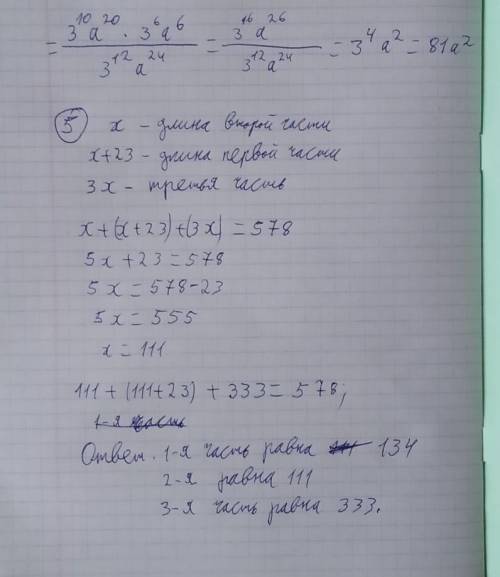 = 3¹⁰a²⁰ · 3⁶a⁶ / 3¹²a²⁴ = 3¹⁶a²⁶ / 3¹²a²⁴ = 3⁴a² = 81a²
5 x – длина второй части
x+23 – длина первой части
3x – третья часть
x+(x+23)+(3x)=578
5x+23=578
5x=578-23
5x=555
x=111
111+(111+23)+333=578;
1-я часть
Ответ. 1-я часть равна 134
2-я равна 111
3-я часть равна 333.